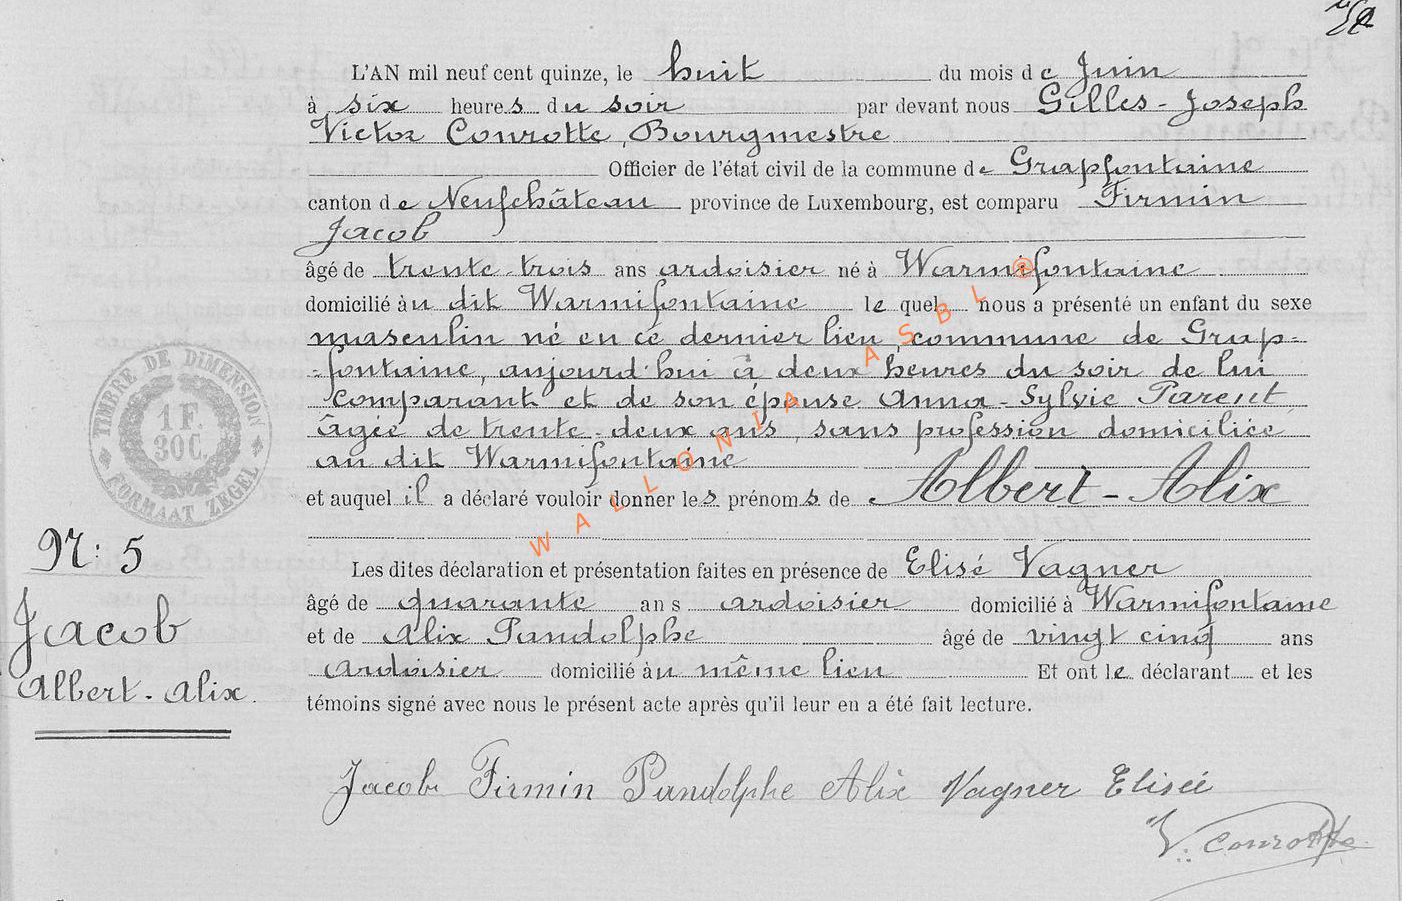 L'AN mil neuf cent quinze, le huit du mois de Juin
à six heures du soir par devant nous Gilles-Joseph
Victor Conrotte, Bourgmestre
Officier de l'état civil de la commune de Grapfontaine
canton de Neufchâteau province de Luxembourg, est comparu Firmin
Jacob
âgé de trente-trois ans ardoisier né à Warmifontaine
domicilié au dit Warmifontaine lequel nous a présenté un enfant du sexe
masculin né en ce dernier lieu, commune de Grap-
-fontaine, aujourd'hui à deux heures du soir de lui
comparant et de son épouse Anna-Sylvie Parent,
âgée de trente-deux ans, sans profession domiciliée
au dit Warmifontaine
et auquel il a déclaré vouloir donner les prénoms de Albert-Alix
Les dites déclaration et présentation faites en présence de Elisé Vagner
âgé de quarante ans ardoisier domicilié à Warmifontaine
et de Alix Pandolphe âgé de vingt cinq ans
ardoisier domicilié au même lieu Et ont le déclarant et les
témoins signé avec nous le présent acte après qu'il leur en a été fait lecture.
Jacob Firmin Pandolphe Alix Vagner Elisée
V. Conrotte
TIMBRE DE DIMENSION
1 F.
30 C.
FORMAAT ZEGEL
N: 5
Jacob
Albert-Alix.
WALLONIA ASBL ®